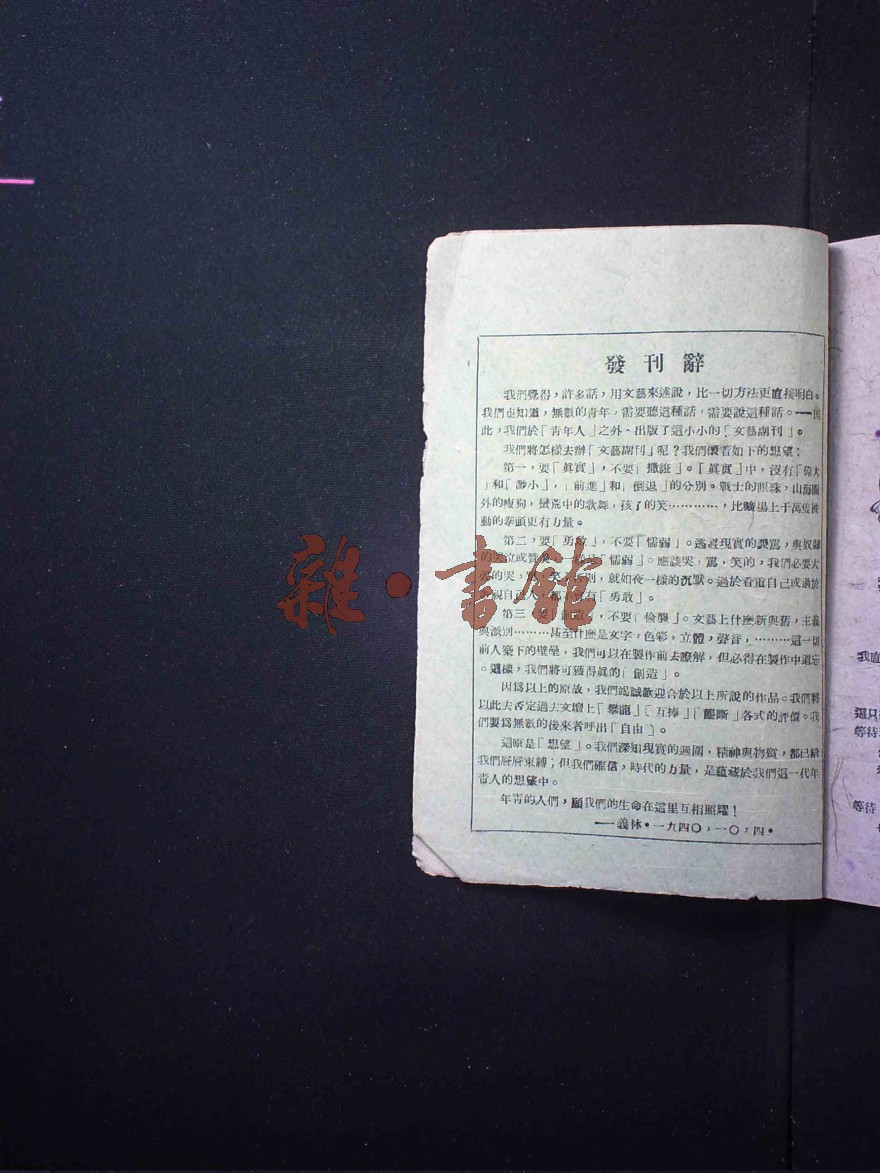 發刊辭
我們覺得，許多話，用文藝來述說，比一切方法更直接明白。
我們也知道，無數的青年，需要聽這種話，需要說這種話。——因
此，我們於「青年人」之外，出版了這小小的「文藝副刊」。
我們將怎樣去辦「文藝副刊」呢？我們懷着如下的想望：
第一，要「眞實」，不要「撒誑」。「眞實」中，沒有「偉大
」和「渺小」，「前進」和「倒退」的分別。戰士的眼珠，山海關
外的瘦狗，蠻荒中的歌舞，孩子的笑…………，比曠場上千萬隻被
動的拳頭更有力量。
第二，要「勇敢」，不要「懦弱」。逃避現實的謾罵，與奴隸
的哭泣或贊美，一樣是「懦弱」。應該哭，罵，笑的，我們必要大
的哭，罵，笑，否則，就如夜一樣的沉默。過於看重自己或過於
視自己人，都沒有「勇敢」。
第三，要「創造」，不要「偸襲」。文藝上什麼新與舊，主義
與派別………甚至什麼是文字，色彩，立體，聲音，………這一切
前人築下的壁壘，我們可以在製作前去瞭解，但必得在製作中遺忘
。這樣，我們將可獲得眞的「創造」。
因爲以上的原故，我們竭誠歡迎合於以上所說的作品。我們將
以此去否定過去文壇上「攀龍」「互捧」「壟斷」各式的評價。我
們要爲無數的後來者呼出「自由」。
這原是「想望」。我們深知現實的週圍，精神與物質，都已給
我們層層束縛；但我們確信，時代的力量，是蘊藏於我們這一代年
靑人的想望中。
年靑的人們，願我們的生命在這里互相照耀！
——義休·一九四〇，一〇，四·
雜·書館
我
這只
等待
等待